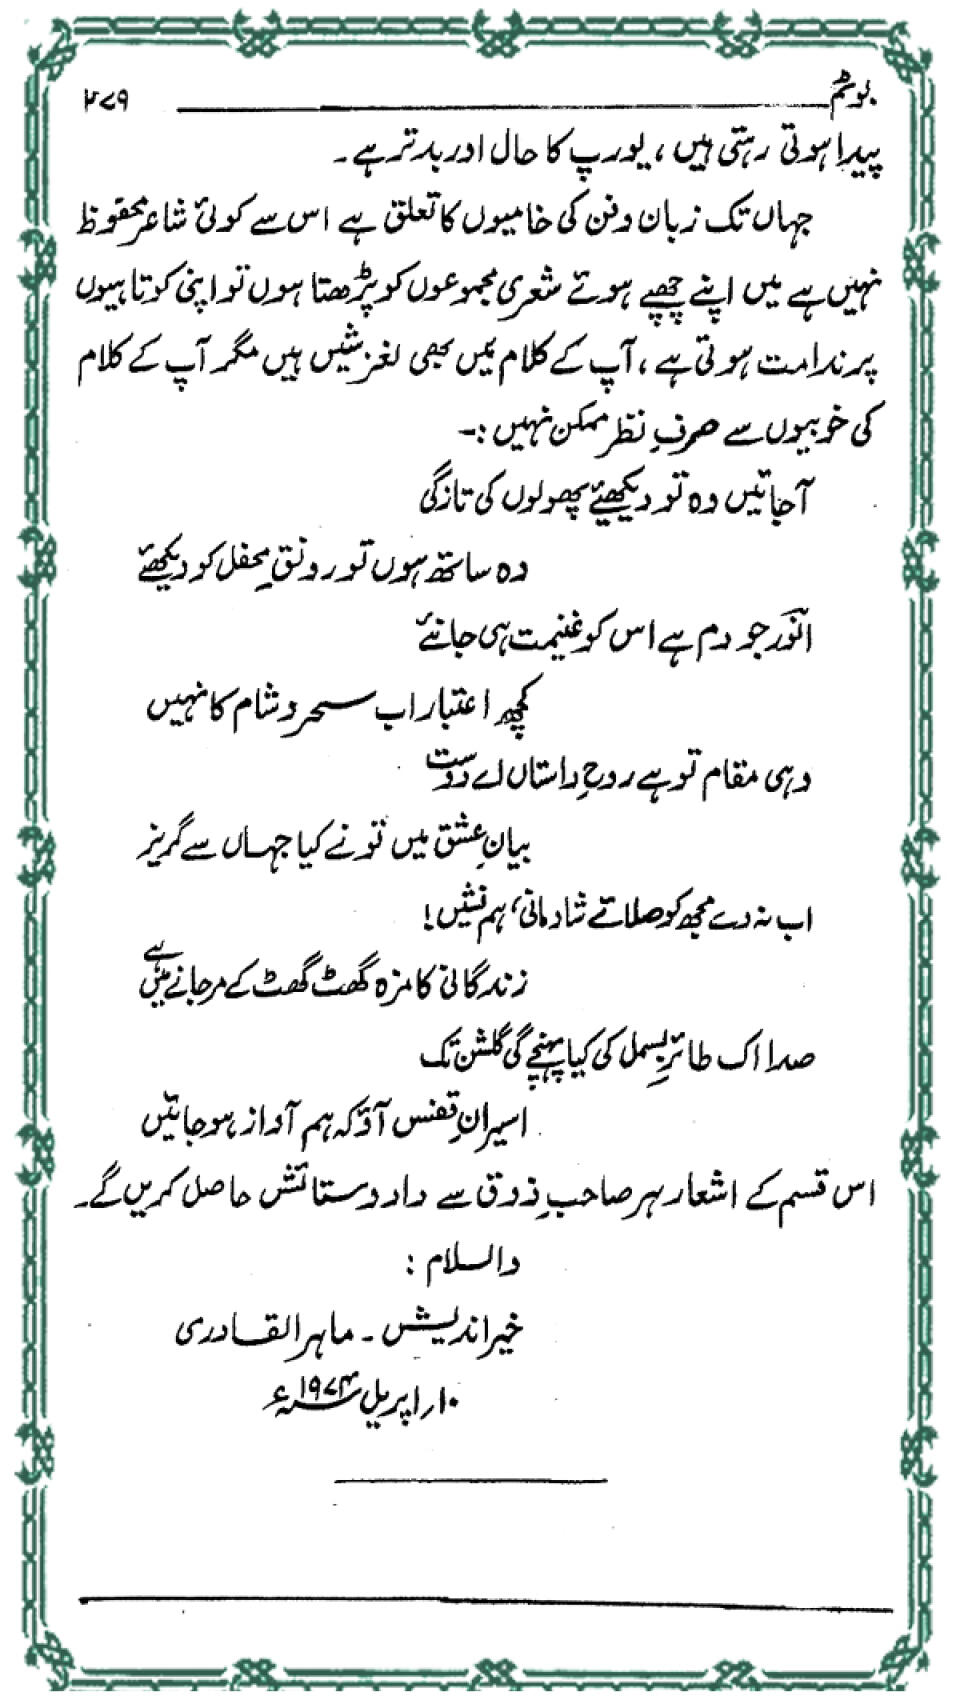 بوئے گم ۴۷۹
پیدا ہوتی رہتی ہیں، یورپ کا حال اور بدتر ہے۔
جہاں تک زبان و فن کی خامیوں کا تعلق ہے اس سے کوئی شاعر محفوظ
نہیں ہے میں اپنے چھپے ہوئے شعری مجموعوں کو پڑھتا ہوں تو اپنی کوتاہیوں
پر ندامت ہوتی ہے، آپ کے کلام میں بھی لغزشیں ہیں مگر آپ کے کلام
کی خوبیوں سے صرفِ نظر ممکن نہیں :۔
آجائیں وہ تو دیکھئے پھولوں کی تازگی
وہ ساتھ ہوں تو رونقِ محفل کو دیکھئے
انوؔر جو دم ہے اس کو غنیمت ہی جانئے
کچھ اعتبار اب سحر و شام کا نہیں
وہی مقام تو ہے روحِ داستاں اے دوست
بیانِ عشق میں تو نے کیا جہاں سے گریز
اب نہ دے مجھ کو صلائے شادمانی، ہم نشیں!
زندگانی کا مزہ گھٹ گھٹ کے مر جانے میں ہے
صدا اک طائرِ بسمل کی کیا پہنچے گی گلشن تک
اسیرانِ قفس آؤ کہ ہم آواز ہو جائیں
اس قسم کے اشعار ہر صاحبِ ذوق سے داد و ستائش حاصل کریں گے۔
والسلام :
خیر اندیش ۔ ماہر القادری
۱۰؍ اپریل ۱۹۷۴ء